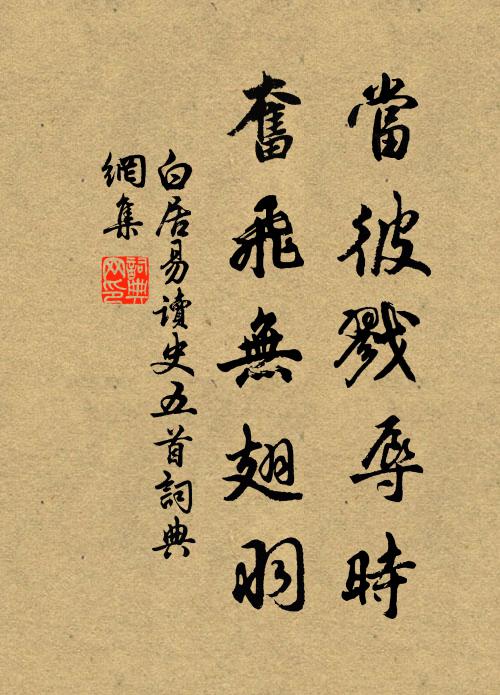 當彼戮辱時
奮飛無翅羽
白居易讀史五首詞典
網集
詞典網印